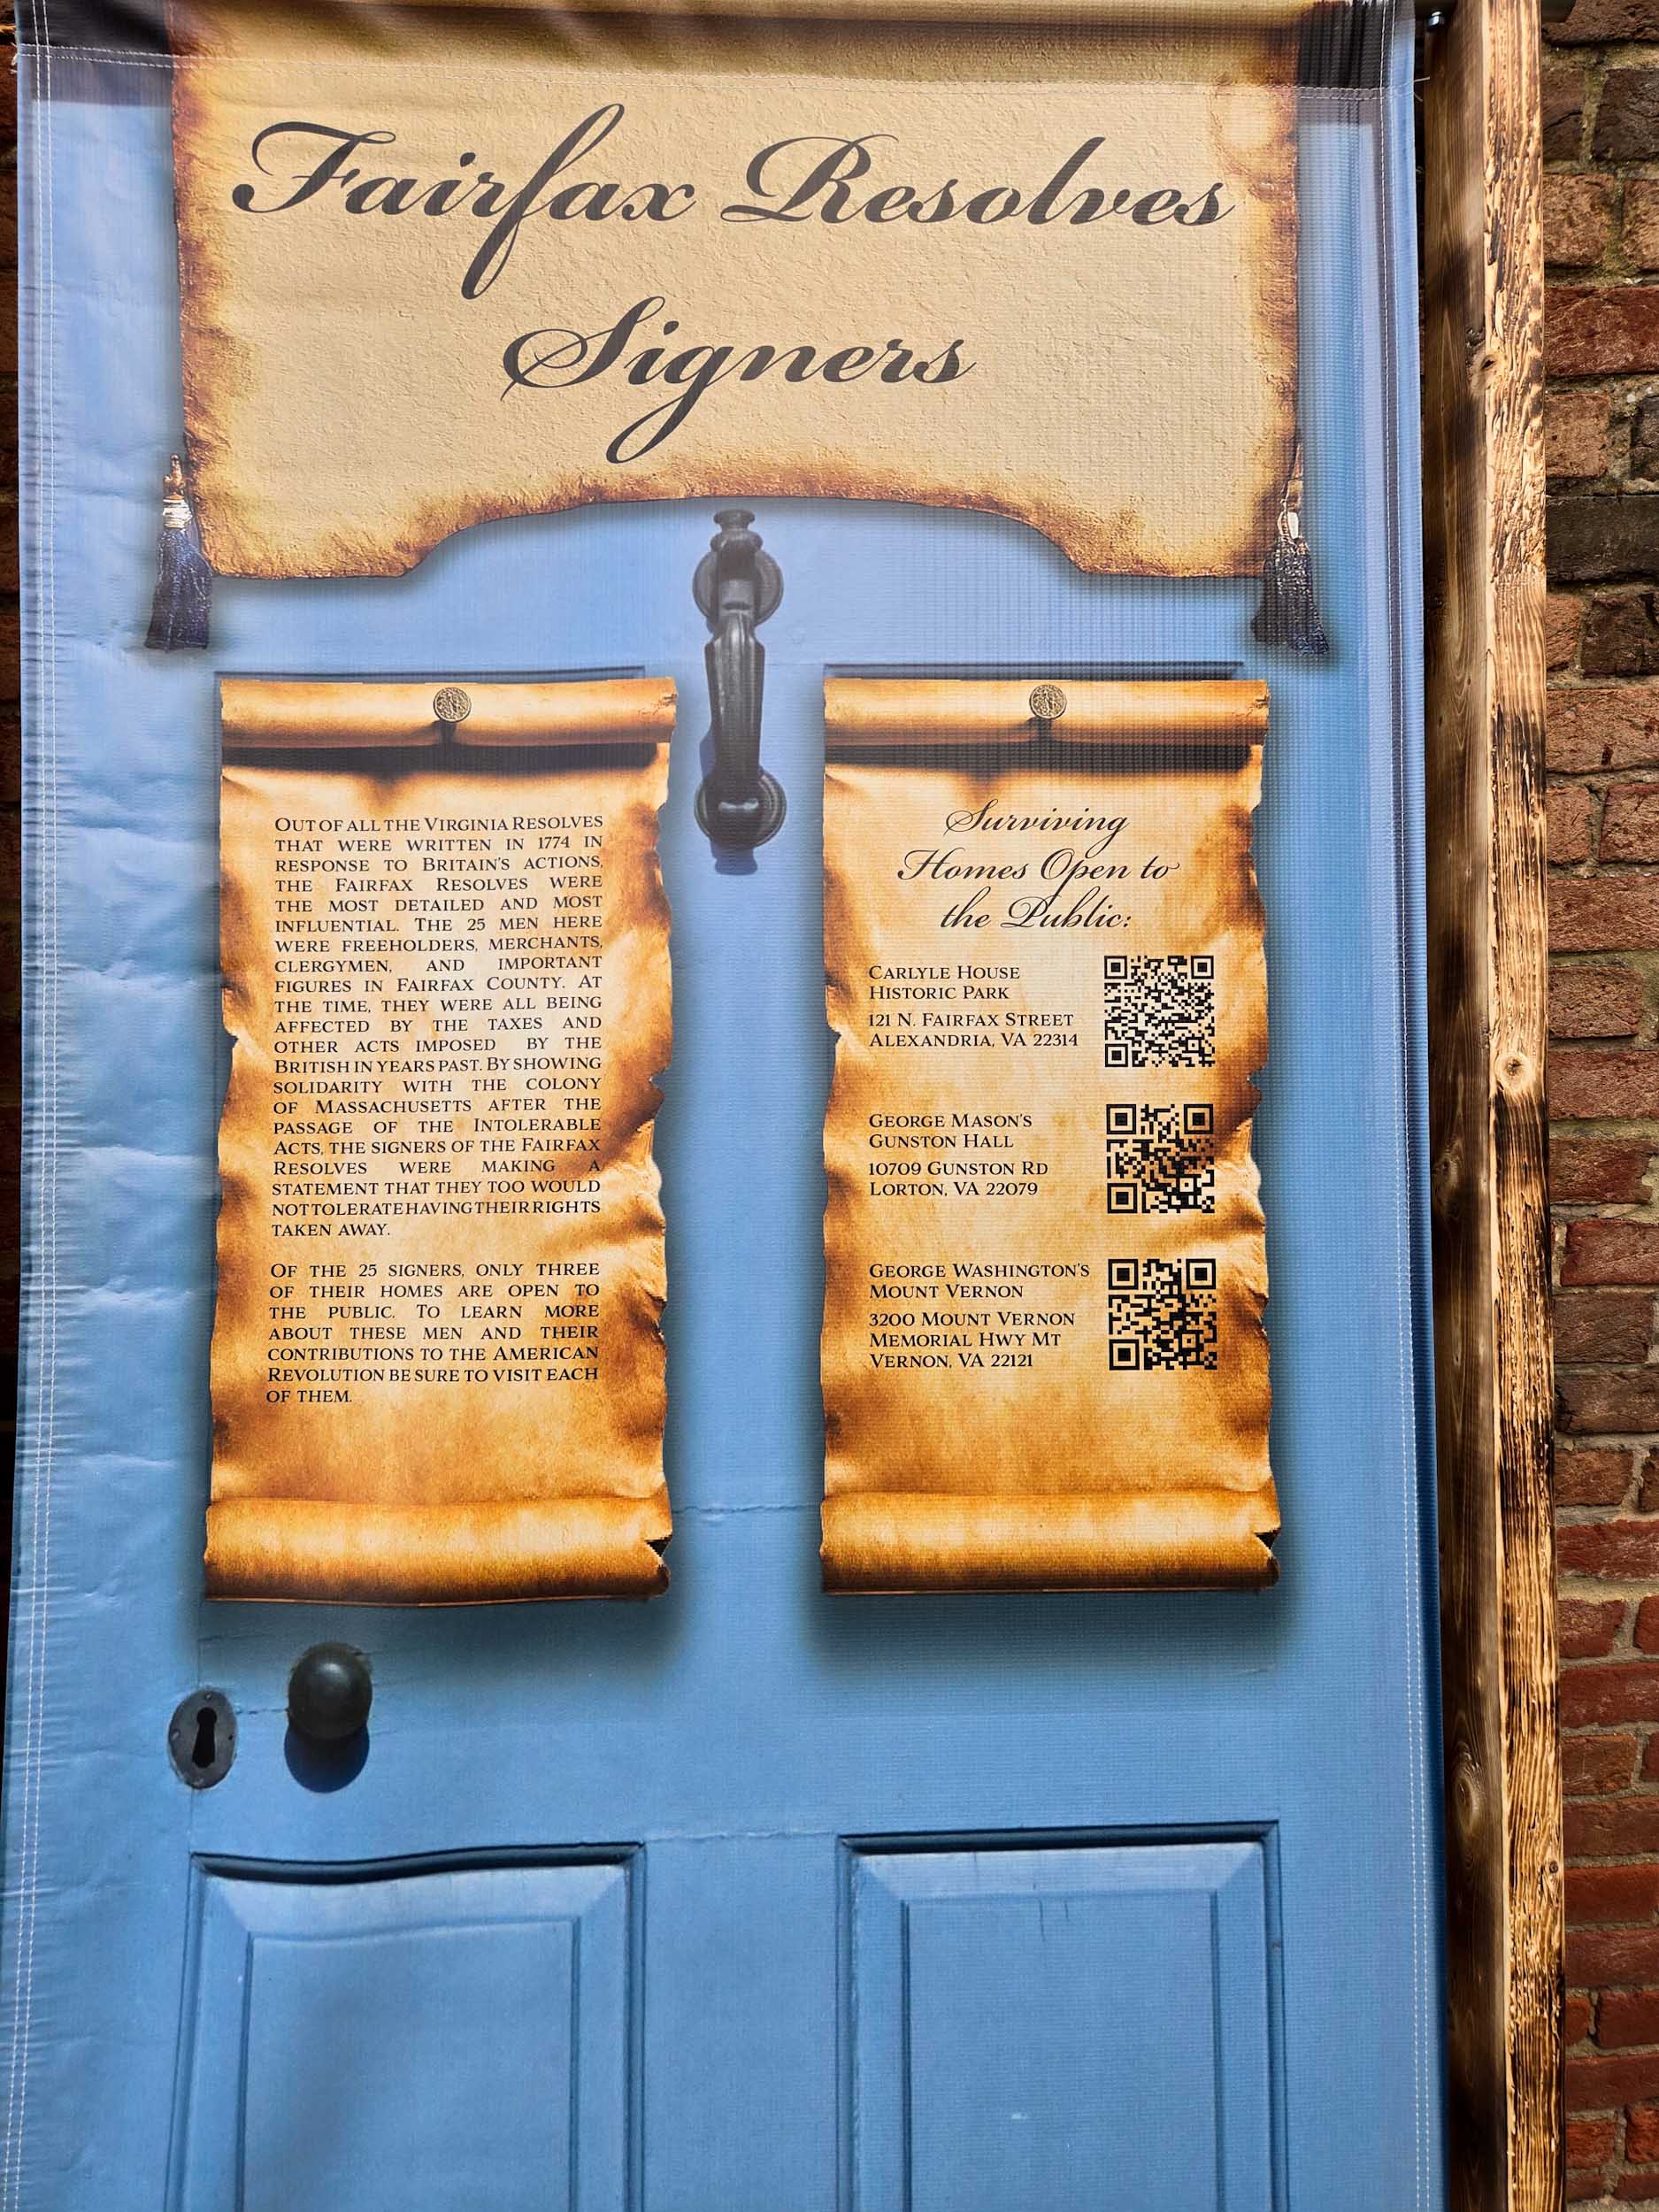 Fairfax Resolves
Signers
Out of all the Virginia Resolves
that were written in 1774 in
response to Britain's actions,
the Fairfax Resolves were
the most detailed and most
influential. The 25 men here
were freeholders, merchants,
clergymen, and important
figures in Fairfax County. At
the time, they were all being
affected by the taxes and
other acts imposed by the
British in years past. By showing
solidarity with the colony
of Massachusetts after the
passage of the Intolerable
Acts, the signers of the Fairfax
Resolves were making a
statement that they too would
not tolerate having their rights
taken away.
Of the 25 signers, only three
of their homes are open to
the public. To learn more
about these men and their
contributions to the American
Revolution be sure to visit each
of them.
Surviving
Homes Open to
the Public:
Carlyle House
Historic Park
121 N. Fairfax Street
Alexandria, VA 22314
George Mason's
Gunston Hall
10709 Gunston Rd
Lorton, VA 22079
George Washington's
Mount Vernon
3200 Mount Vernon
Memorial Hwy Mt
Vernon, VA 22121